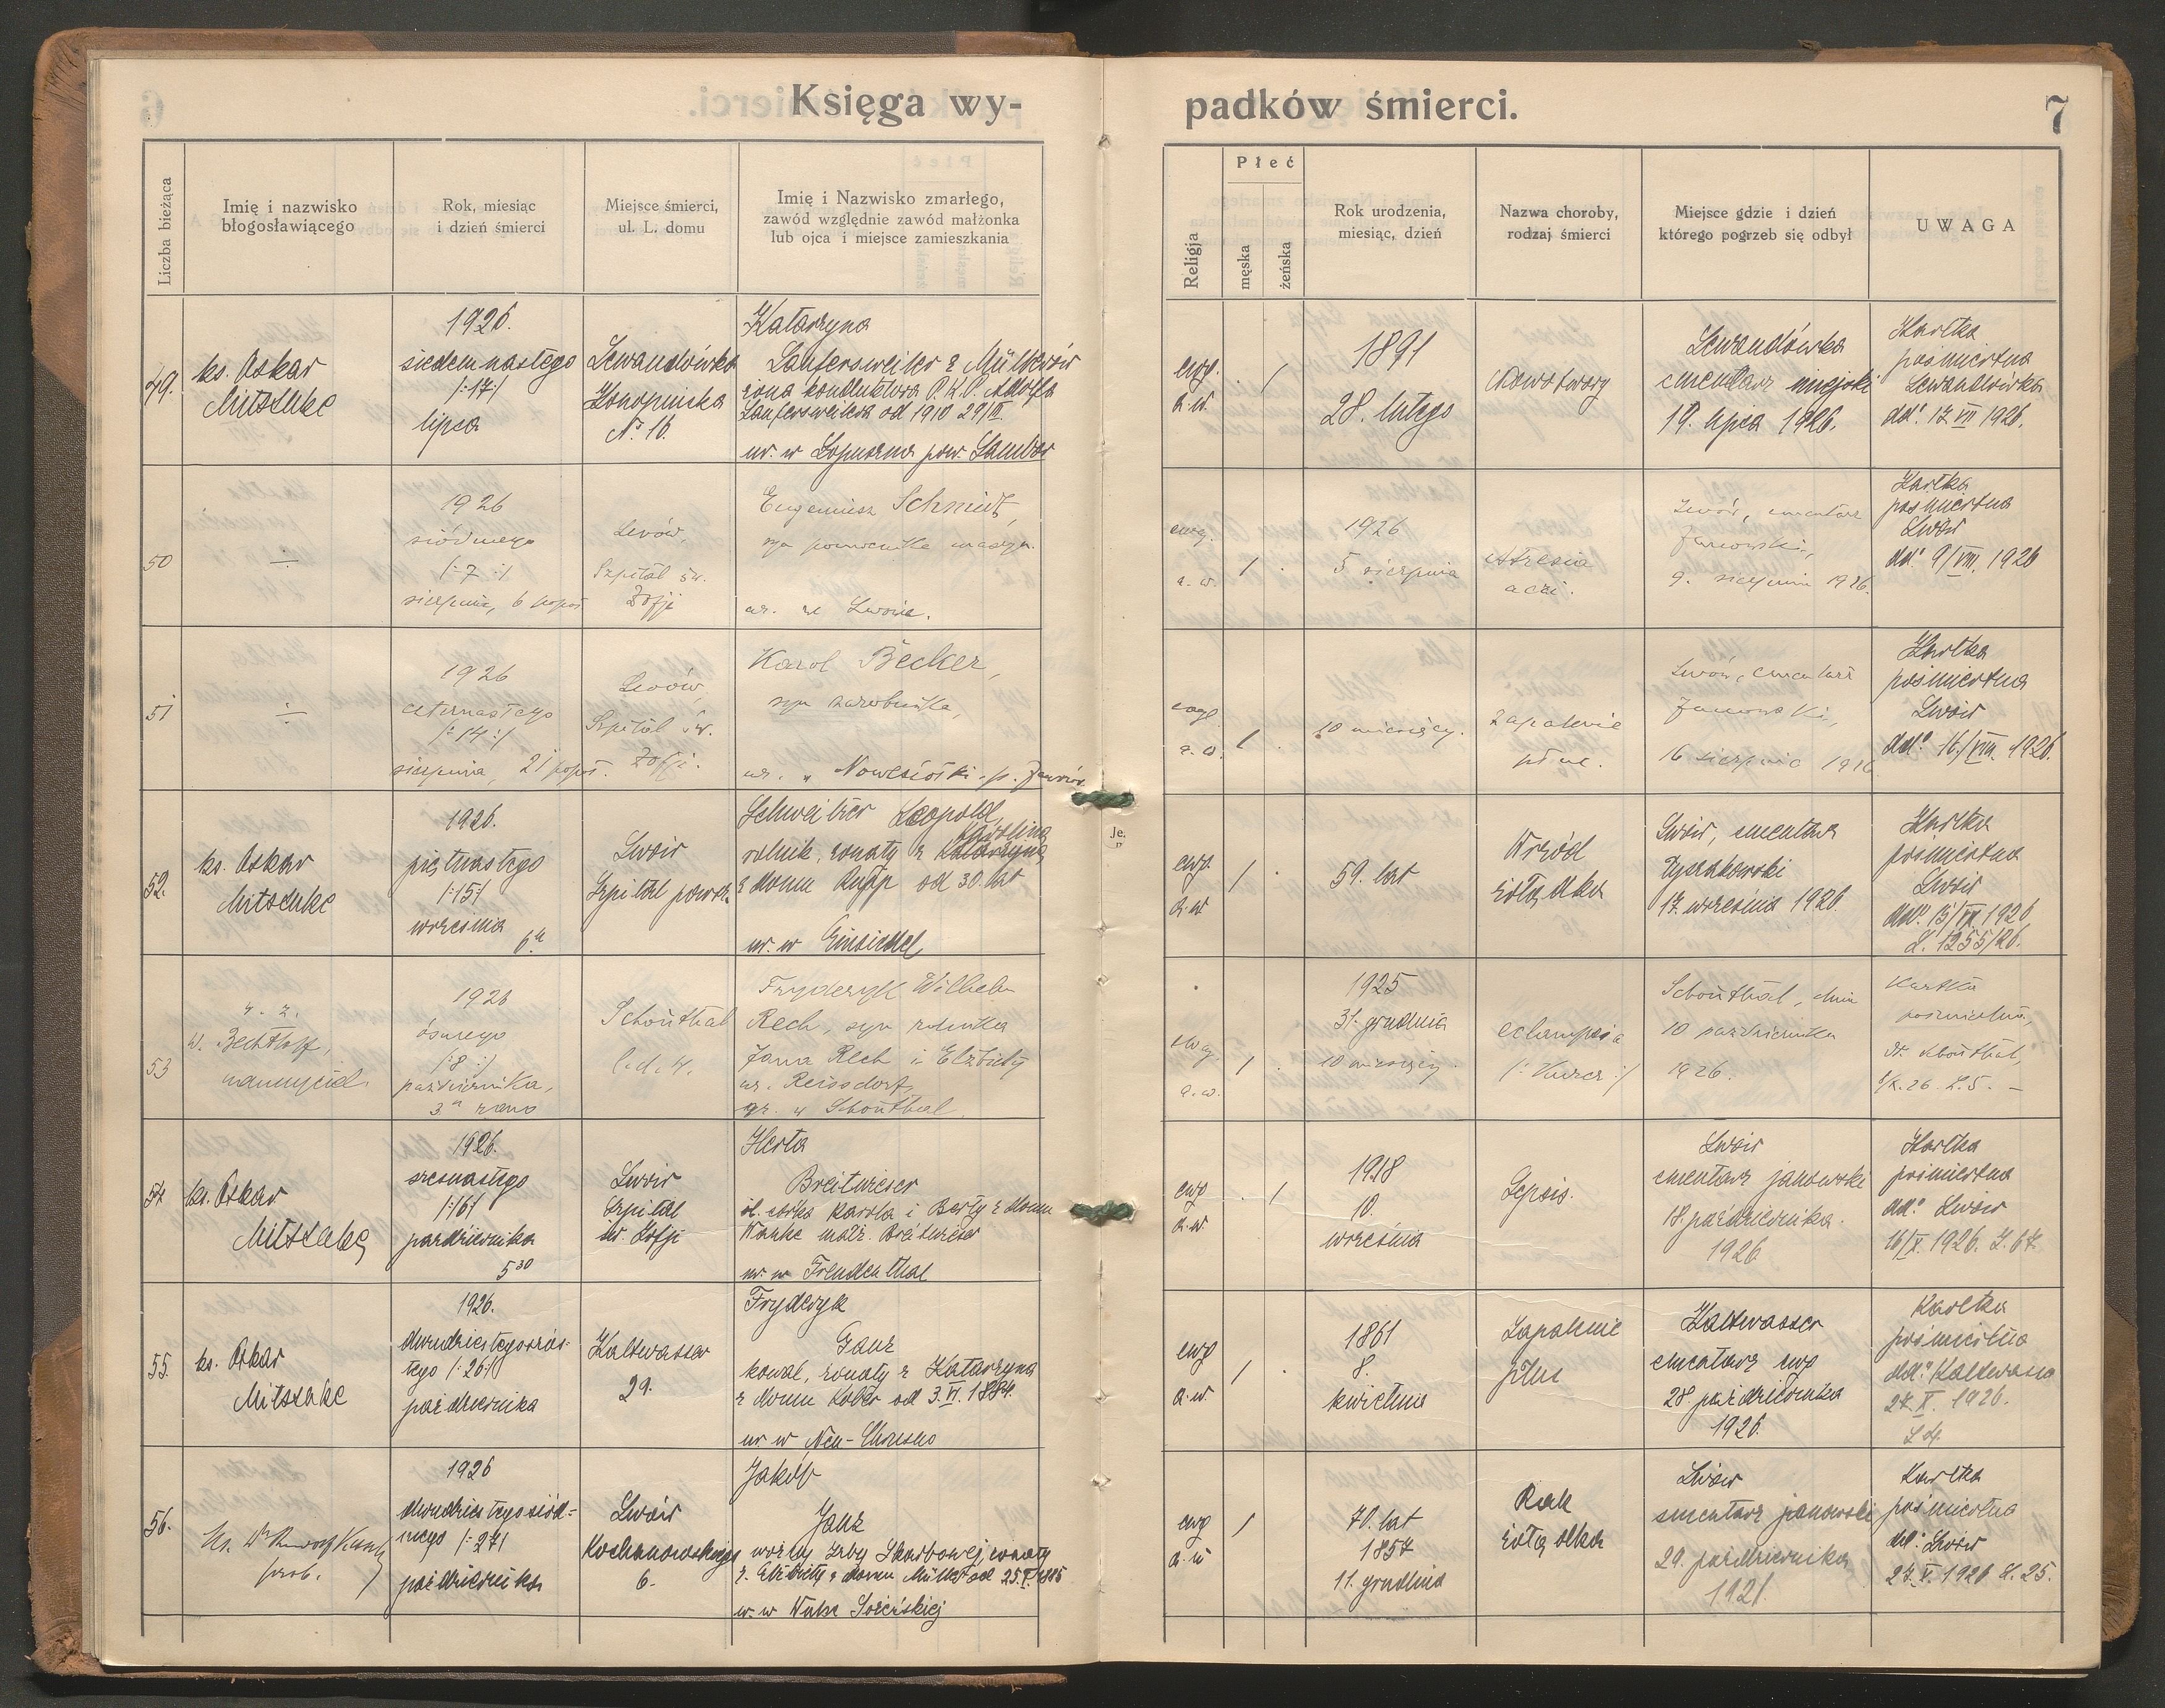 Księga wy-
padków śmierci.
7
Liczba bieżąca
Imię i nazwisko
błogosławiącego
Rok, miesiąc
i dzień śmierci
Miejsce śmierci,
ul. L. domu
Imię i Nazwisko zmarłego,
zawód względnie zawód małżonka
lub ojca i miejsce zamieszkania
Religja
Płeć
męska
żeńska
Rok urodzenia,
miesiąc, dzień
Nazwa choroby,
rodzaj śmierci
Miejsce gdzie i dzień
którego pogrzeb się odbył
UWAGA
49.
ks. Oskar
Mitschke
1926.
siedemnastego
/:17:/
lipca
Lewandówka
Konopnicka
No 16.
Katarzyna
Laufersweiler z Müllerów
żona konduktora P.K.P. Adolfa
Laufersweilera od 1910 29/III.
ur. w Łopuszna pow. Sambor
ewg.
a.w.
. /
1891
28. lutego
nowotwory
Lewandówka
cmentarz miejski
19. lipca 1926.
Kartka
pośmiertna
Lewandówka
dd: 17 VII 1926.
50
÷
1926
siódmego
/:7:/
sierpnia, 6 popoł
Lwów,
Szpital św.
Zofji
Eugeniusz Schmidt,
syn pomocnika maszyn.
ur. we Lwowie.
ewg.
a.w.
/ .
1926
5 sierpnia
atresia
ani.
Lwów, cmentarz
Janowski,
9. sierpnia 1926.
Kartka
pośmiertna
Lwów
dd: 9/VIII. 1926
51
÷
1926
czternastego
/:14:/
sierpnia, 21 popoł.
Lwów,
Szpital św.
Zofji.
Karol Becker,
syn zarobnika,
ur. w Nowesiołki p. Janów
ewg.
a.w.
/ .
10 miesięcy.
zapalenie
płuc.
Lwów, cmentarz
Janowski,
16 sierpnia 1926
Kartka
pośmiertna
Lwów
dd: 16/VIII. 1926.
52.
ks. Oskar
Mitschke
1926.
piętnastego
/:15/
września
6h
Lwów
Szpital powsz.
Schweitzer Leopold,
Karolina
rolnik, żonaty z Katarzyną
z domu Rupp od 30. lat
ur. w Einsiedel
ewg.
a.w
/ .
59. lat
Wrzód
żołądka
Lwów, cmentarz
Łyczakowski
17. września 1926.
Kartka
pośmiertna
Lwów
dd: 15/IX. 1926,
L. 1255/26.
53
w. z.
W. Bechtloff,
nauczyciel.
1926
ósmego
/:8:/
października,
3h rano
Schönthal
l.d. 4.
Fryderyk Wilhelm
Rech, syn rolnika
Jana Rech i Elżbiety
ur. Reissdorf,
ur. w Schönthal.
ewg.
a.w.
/ .
1925
31. grudnia
10 miesięcy.
eclampsia
/:Kurcz:/
Schönthal, dnia
10 października
1926.
Kartka
pośmiertna,
dt. Schönthal,
8/X. 26. L.5. –
54
ks. Oskar
Mitschke
1926.
szesnastego
/:16/
października
5 30
Lwów
Szpital
św. Zofji
Herta
Breitwieser
śl. córka Karola i Berty z domu
Wanke małż. Breitwieser
ur. w Freudenthal
ewg
a.w
. /
1918
10.
września
Sepsis.
Lwów
cmentarz janowski
18. października.
1926
Kartka
pośmiertna
dd: Lwów
16/X. 1926. L. 67.
55.
ks. Oskar
Mitschke
1926.
dwudziestegoszós-
tego /:26:/
października
Kaltwasser
29.
Fryderyk
Ganz
kowal, żonaty z Katarzyną
z domu Kober od 3. VI. 1884.
ur. w Neu-Chrusno
ewg
a.w.
/ .
1861
8.
kwietnia
Zapalenie
płuc
Kaltwasser
cmentarz ewg
28. października
1926.
Kartka
pośmiertna
dd: Kaltwasser
27. X. 1926.
L 4.
56.
prob.
1926
dwudziestegosiód-
mego /:27/
października
Lwów
Kochanowskiego
6.
Jakób
Janz
woźny Izby Skarbowej, żonaty
z Elżbietą z domu Müller od 25. I. 1885
ewg
a.w
/
70. lat
1857
11. grudnia
Rak
żołądka
Lwów
cmentarz janowski
29. października
1926.
Kartka
pośmiertna
dd: Lwów
27. X. 1926 L. 25.